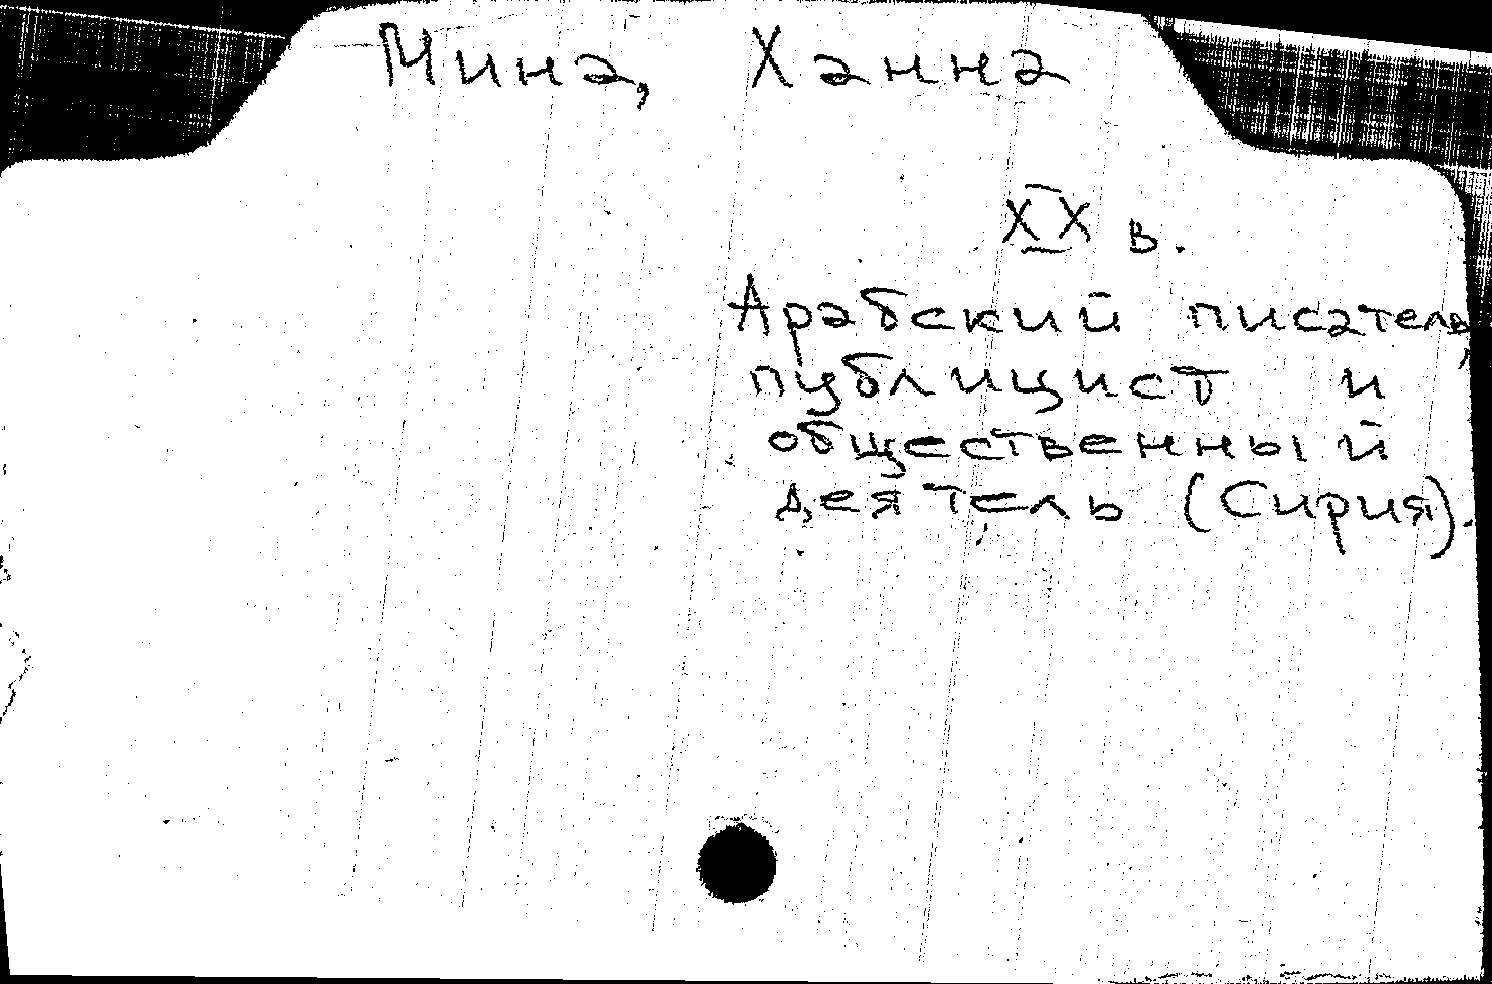 Мина, Ханна
XX в.
Арабский писатель,
публицист и
общественный
деятель (Сирия).